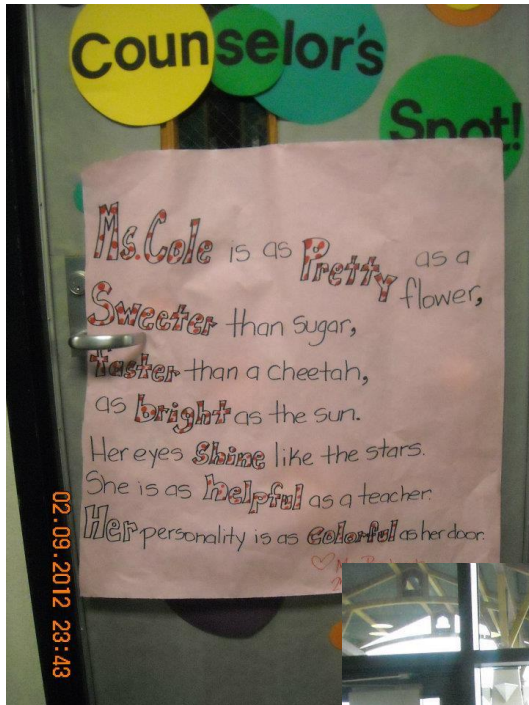 Counselor's
Spot!
Ms. Cole is as Pretty as a
flower,
Sweeter than sugar,
faster than a cheetah,
as bright as the sun.
Her eyes shine like the stars.
She is as helpful as a teacher.
Her personality is as colorful as her door.
02.09.2012 23:43